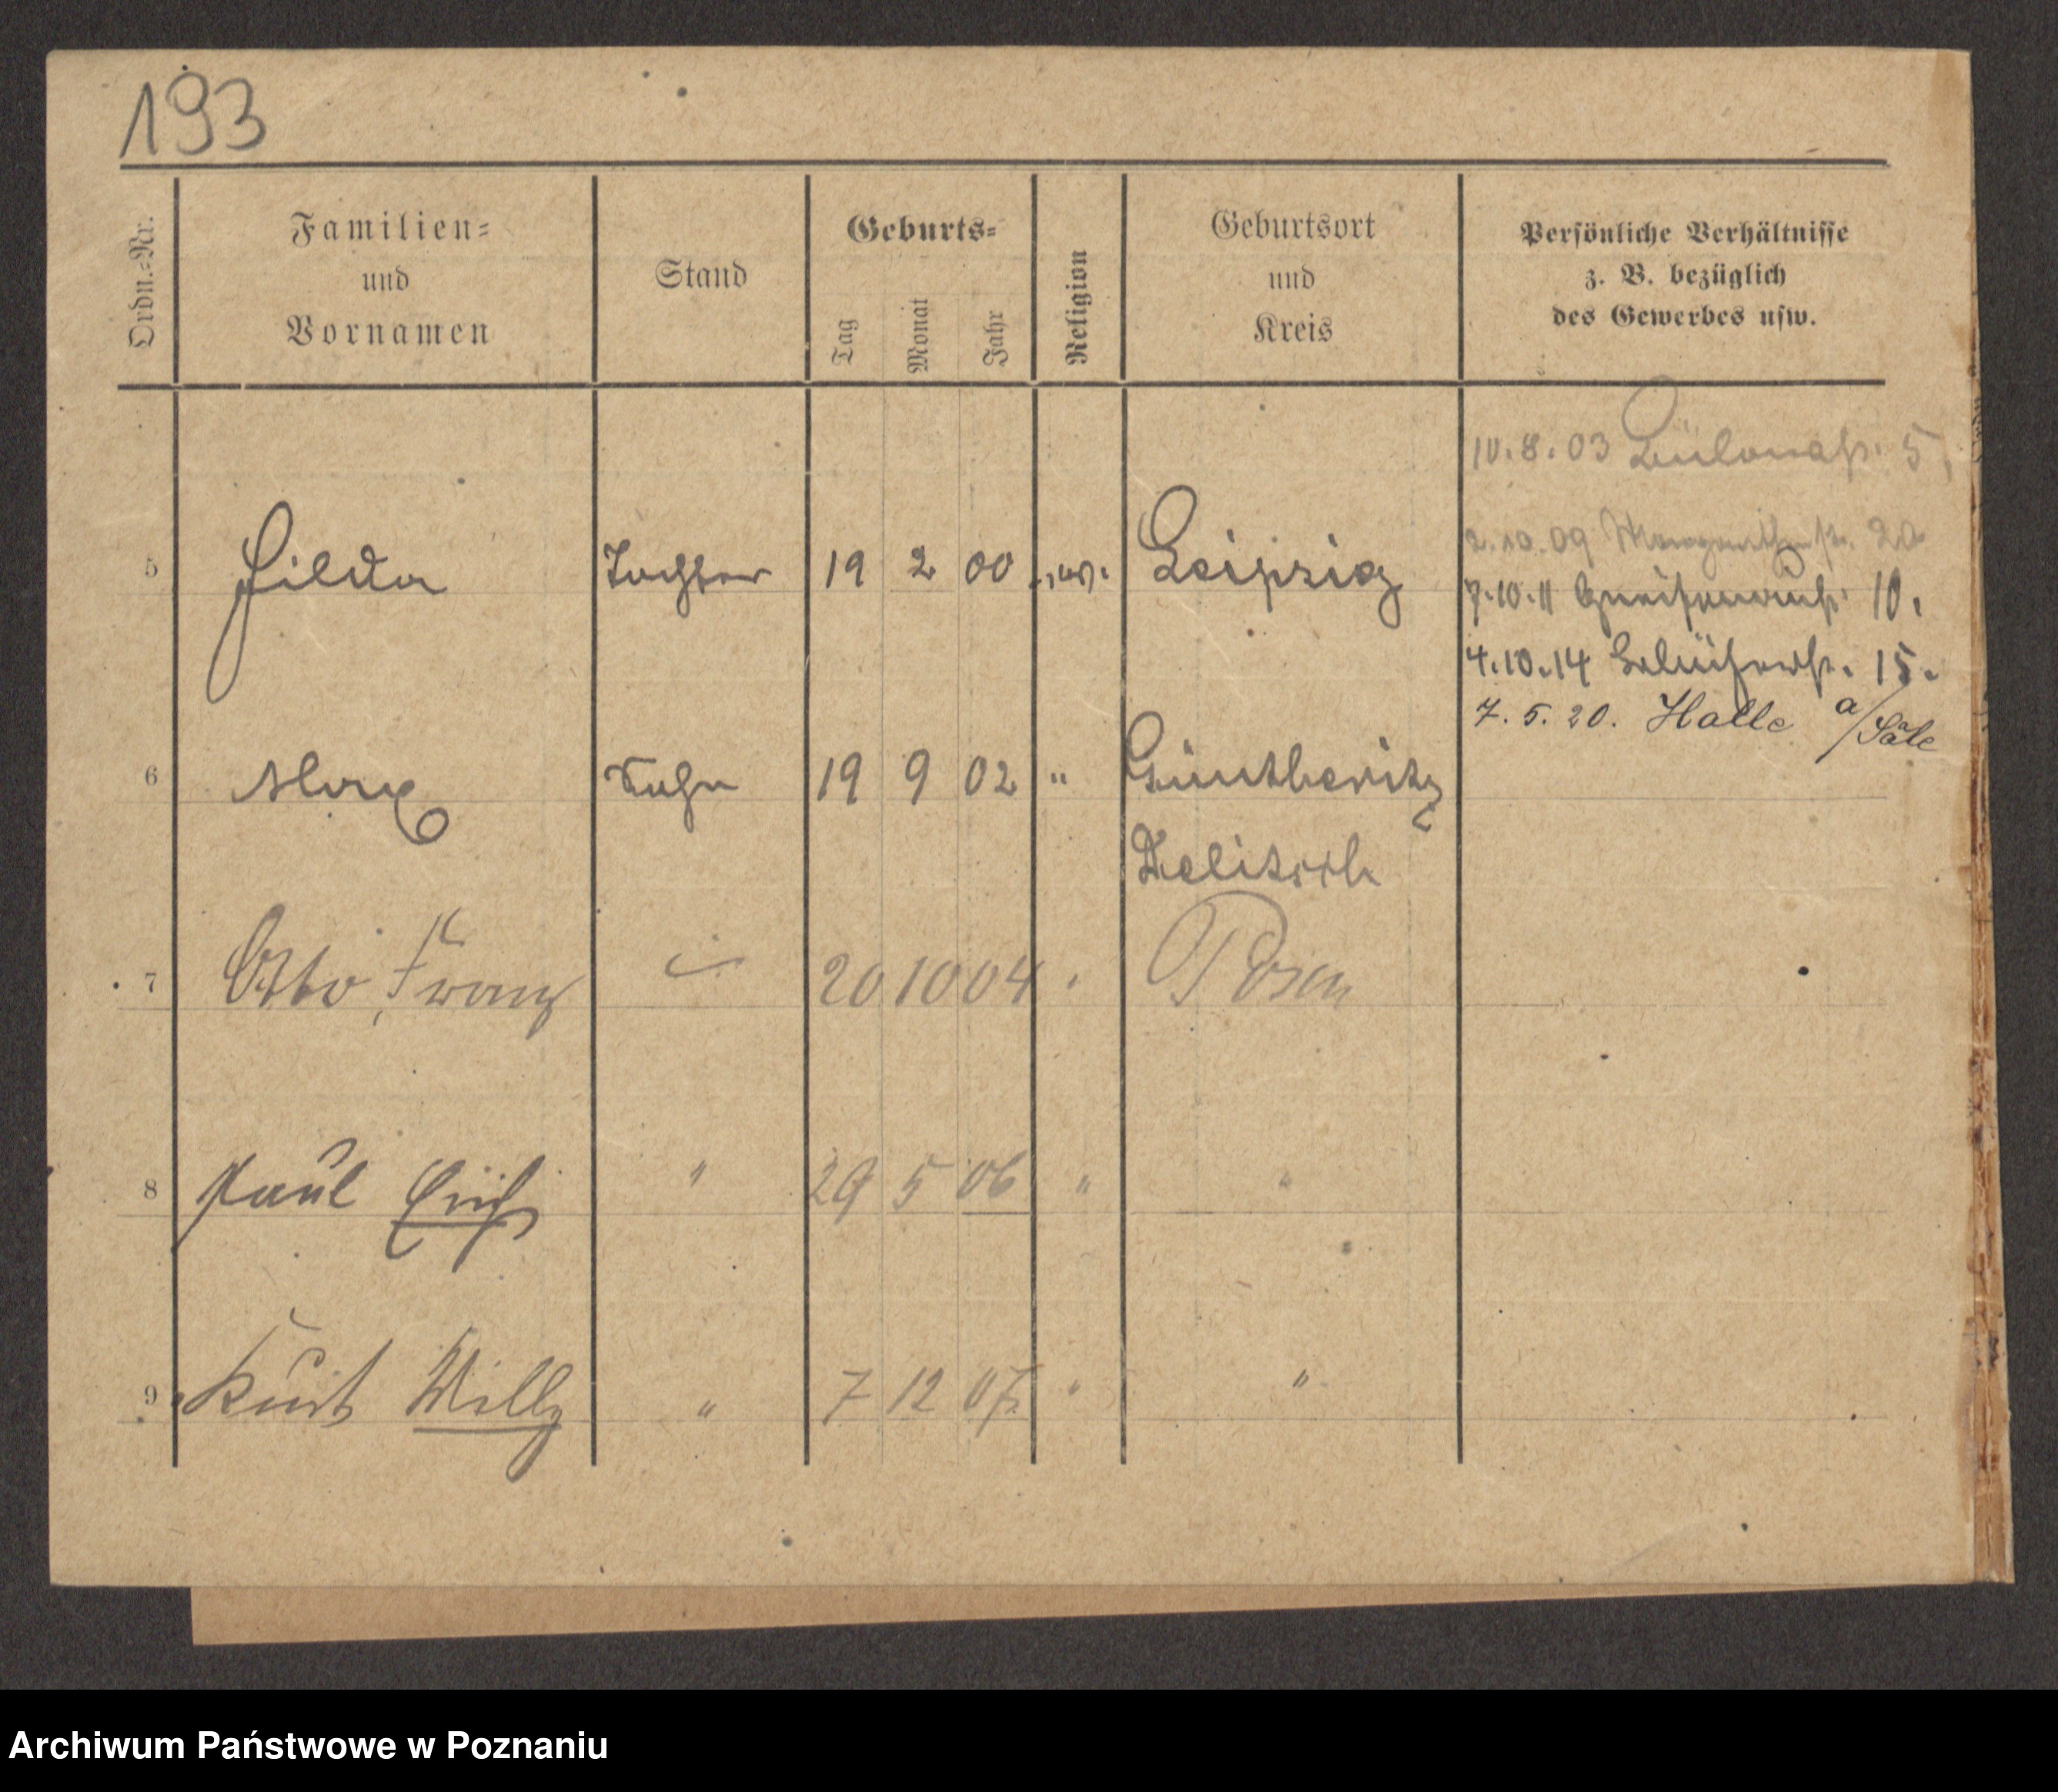 193
Ordn.-Nr.
Familien-
und
Vornamen
Stand
Geburts-
Tag
Monat
Jahr
Religion
Geburtsort
und
Kreis
Persönliche Verhältnisse
z. B. bezüglich
des Gewerbes usw.
10. 8. 03 Bülowstr. 5,
2. 10. 09 Margarethenstr. 20
5 Hilda Tochter 19 2 00 ev. Leipzig
7. 10. 11 Gneisenaustr. 10.
4. 10. 14 Blücherstr. 15.
7. 5. 20. Halle a/Sale
6 Max Sohn 19 9 02 " Güntheritz
Delitzsch
7 Otto, Franz 20 10 04 Posen
8 Paul Erich " 29 5 06 " "
9 Kurt Willy " 7 12 07 " "
Archiwum Państwowe w Poznaniu